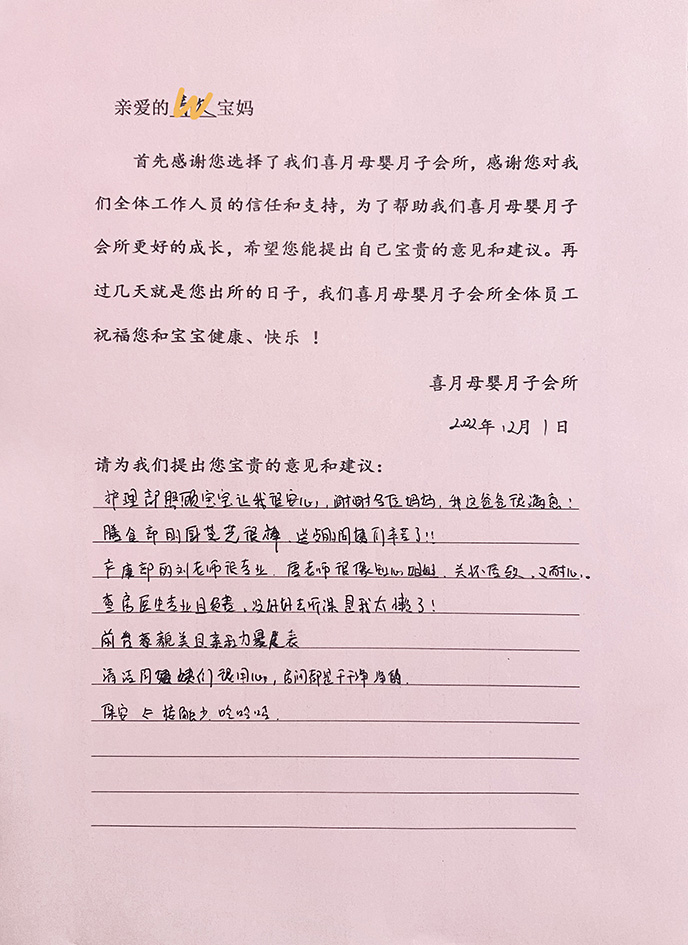 亲爱的 宝妈
首先感谢您选择了我们喜月母婴月子会所，感谢您对我
们全体工作人员的信任和支持，为了帮助我们喜月母婴月子
会所更好的成长，希望您能提出自己宝贵的意见和建议。再
过几天就是您出所的日子，我们喜月母婴月子会所全体员工
祝福您和宝宝健康、快乐 ！
喜月母婴月子会所
2022年 12月 1日
请为我们提出您宝贵的意见和建议：
护理部照顾宝宝让我很安心，谢谢各位妈妈，我这爸爸很满意！
膳食部的厨艺很棒，送餐的阿姨们辛苦了!!
产康部的刘老师很专业，唐老师很像知心姐姐，关怀备致，又耐心。
查房医生专业且负责，没好好去听课是我太懒了！
前台 貌美且亲和力 表
清洁阿姨们很用心，房间都是干干净净的.
保安 接触少 哈哈哈.